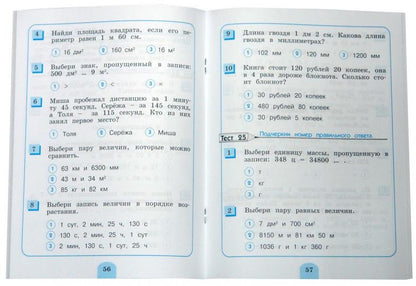 4 Найди площадь квадрата, если его пе-
риметр равен 1 м 60 см.
1 16 дм² 2 160 см² 3 16 м²
5 Выбери знак, пропущенный в записи:
500 дм² ... 9 м².
1 > 2 < 3 =
6 Миша пробежал дистанцию за 1 мину-
ту 45 секунд. Серёжа – за 145 секунд,
а Толя – за 115 секунд. Кто из них
занял первое место?
1 Толя 2 Серёжа 3 Миша
7 Выбери пару величин, которые можно
сравнить.
1 63 км и 6300 мм
2 43 м и 34 м²
3 85 кг и 82 км
8 Выбери запись величин в порядке воз-
растания.
1 1 сут, 2 мин, 25 ч, 130 с
2 130 с, 2 мин, 25 ч, 1 сут
3 2 мин, 130 с, 1 сут, 25 ч
56
9 Длина гвоздя 1 дм 2 см. Какова длина
гвоздя в миллиметрах?
1 102 мм 2 120 мм 3 1200 мм
10 Книга стоит 120 рублей 20 копеек, она
в 4 раза дороже блокнота. Сколько сто-
ит блокнот?
1 30 рублей 20 копеек
2 480 рублей 80 копеек
3 30 рублей 5 копеек
Тест 25 Подчеркни номер правильного ответа.
1 Выбери единицу массы, пропущенную в
записи: 348 ц = 34800 ... .
1 т
2 кг
3 г
2 Выбери пару равных величин.
1 7 дм² и 700 см²
2 8150 м и 81 км 50 м
3 1036 г и 1 кг 360 г
57